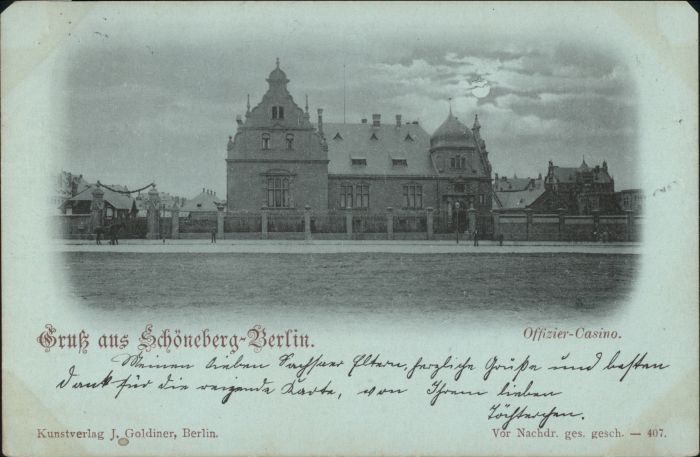 Gruß aus Schöneberg-Berlin.
Offizier-Casino.
Meinen lieben Sachsaer Eltern, herzliche Grüße und besten
dank für die reizende Karte, von Ihrem lieben
Töchterchen.
Kunstverlag J. Goldiner, Berlin.
Vor Nachdr. ges. gesch. — 407.